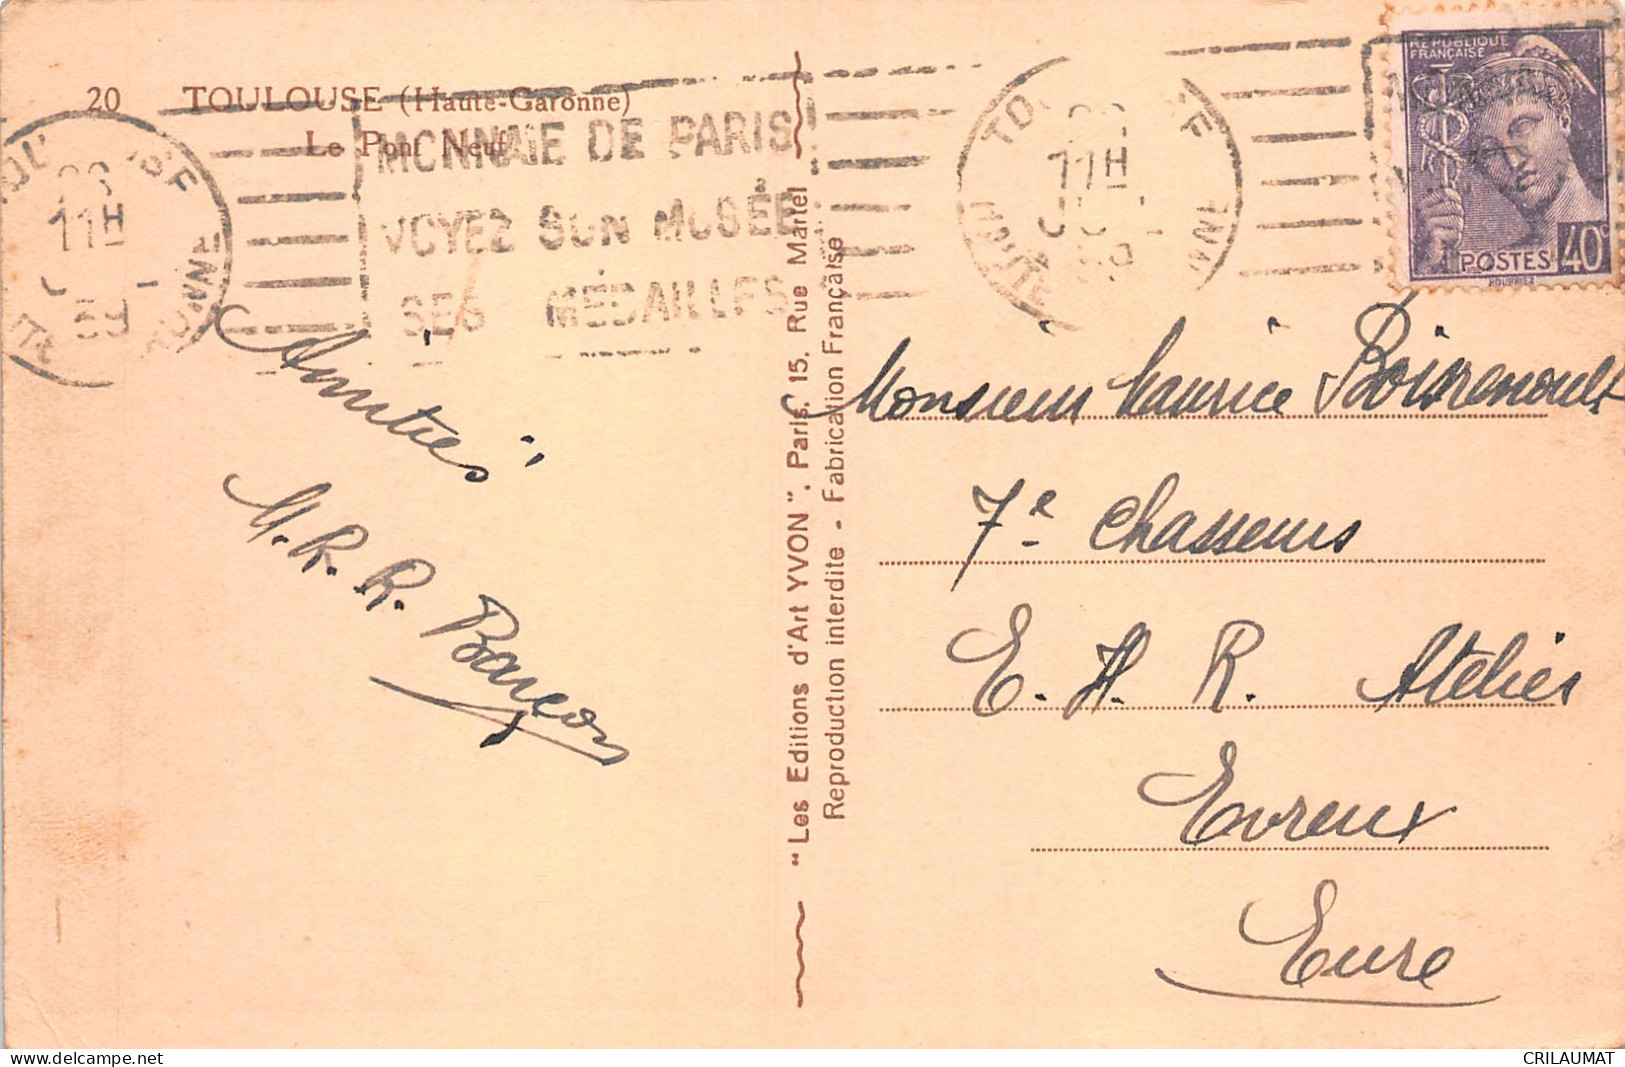 20 TOULOUSE (Haute-Garonne)
Le Pont Neuf
MONNAIE DE PARIS
VOYEZ SON MUSÉE
SES MÉDAILLES
11H
39
11H
RÉPUBLIQUE
FRANÇAISE
POSTES 40c
Amitiés
M. R. R. Barçon
"Les Editions d'Art YVON". Paris. 15, Rue Martel
Reproduction interdite - Fabrication Française
Monsieur Maurice Boisrenoult
7e Chasseurs
E. H. R. Atelier
Evreux
Eure
www.delcampe.net
CRILAUMAT